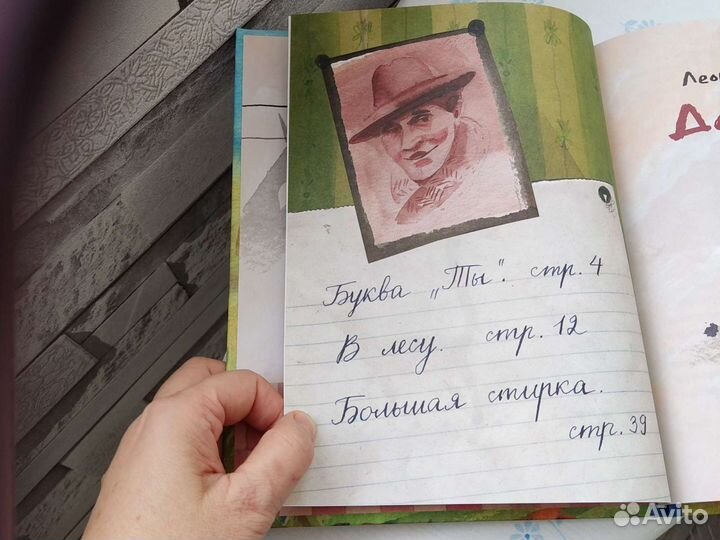 Буква „Ты". стр. 4
В лесу. стр. 12
Большая стирка.
стр. 39
Avito